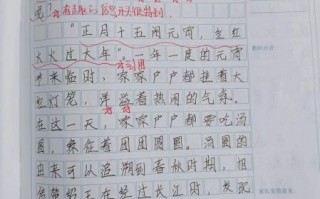 "正月十五闹元宵,红红
火火过大年"一年一度的元宵
节来临时,家家户户都挂着大
红灯笼,洋溢着热闹的气氛。
在这一天,家家户户都要吃汤
圆,象征着团团圆圆。汤圆的
由来可以追溯到春秋时期,相
传楚昭王在经过长江时,发现